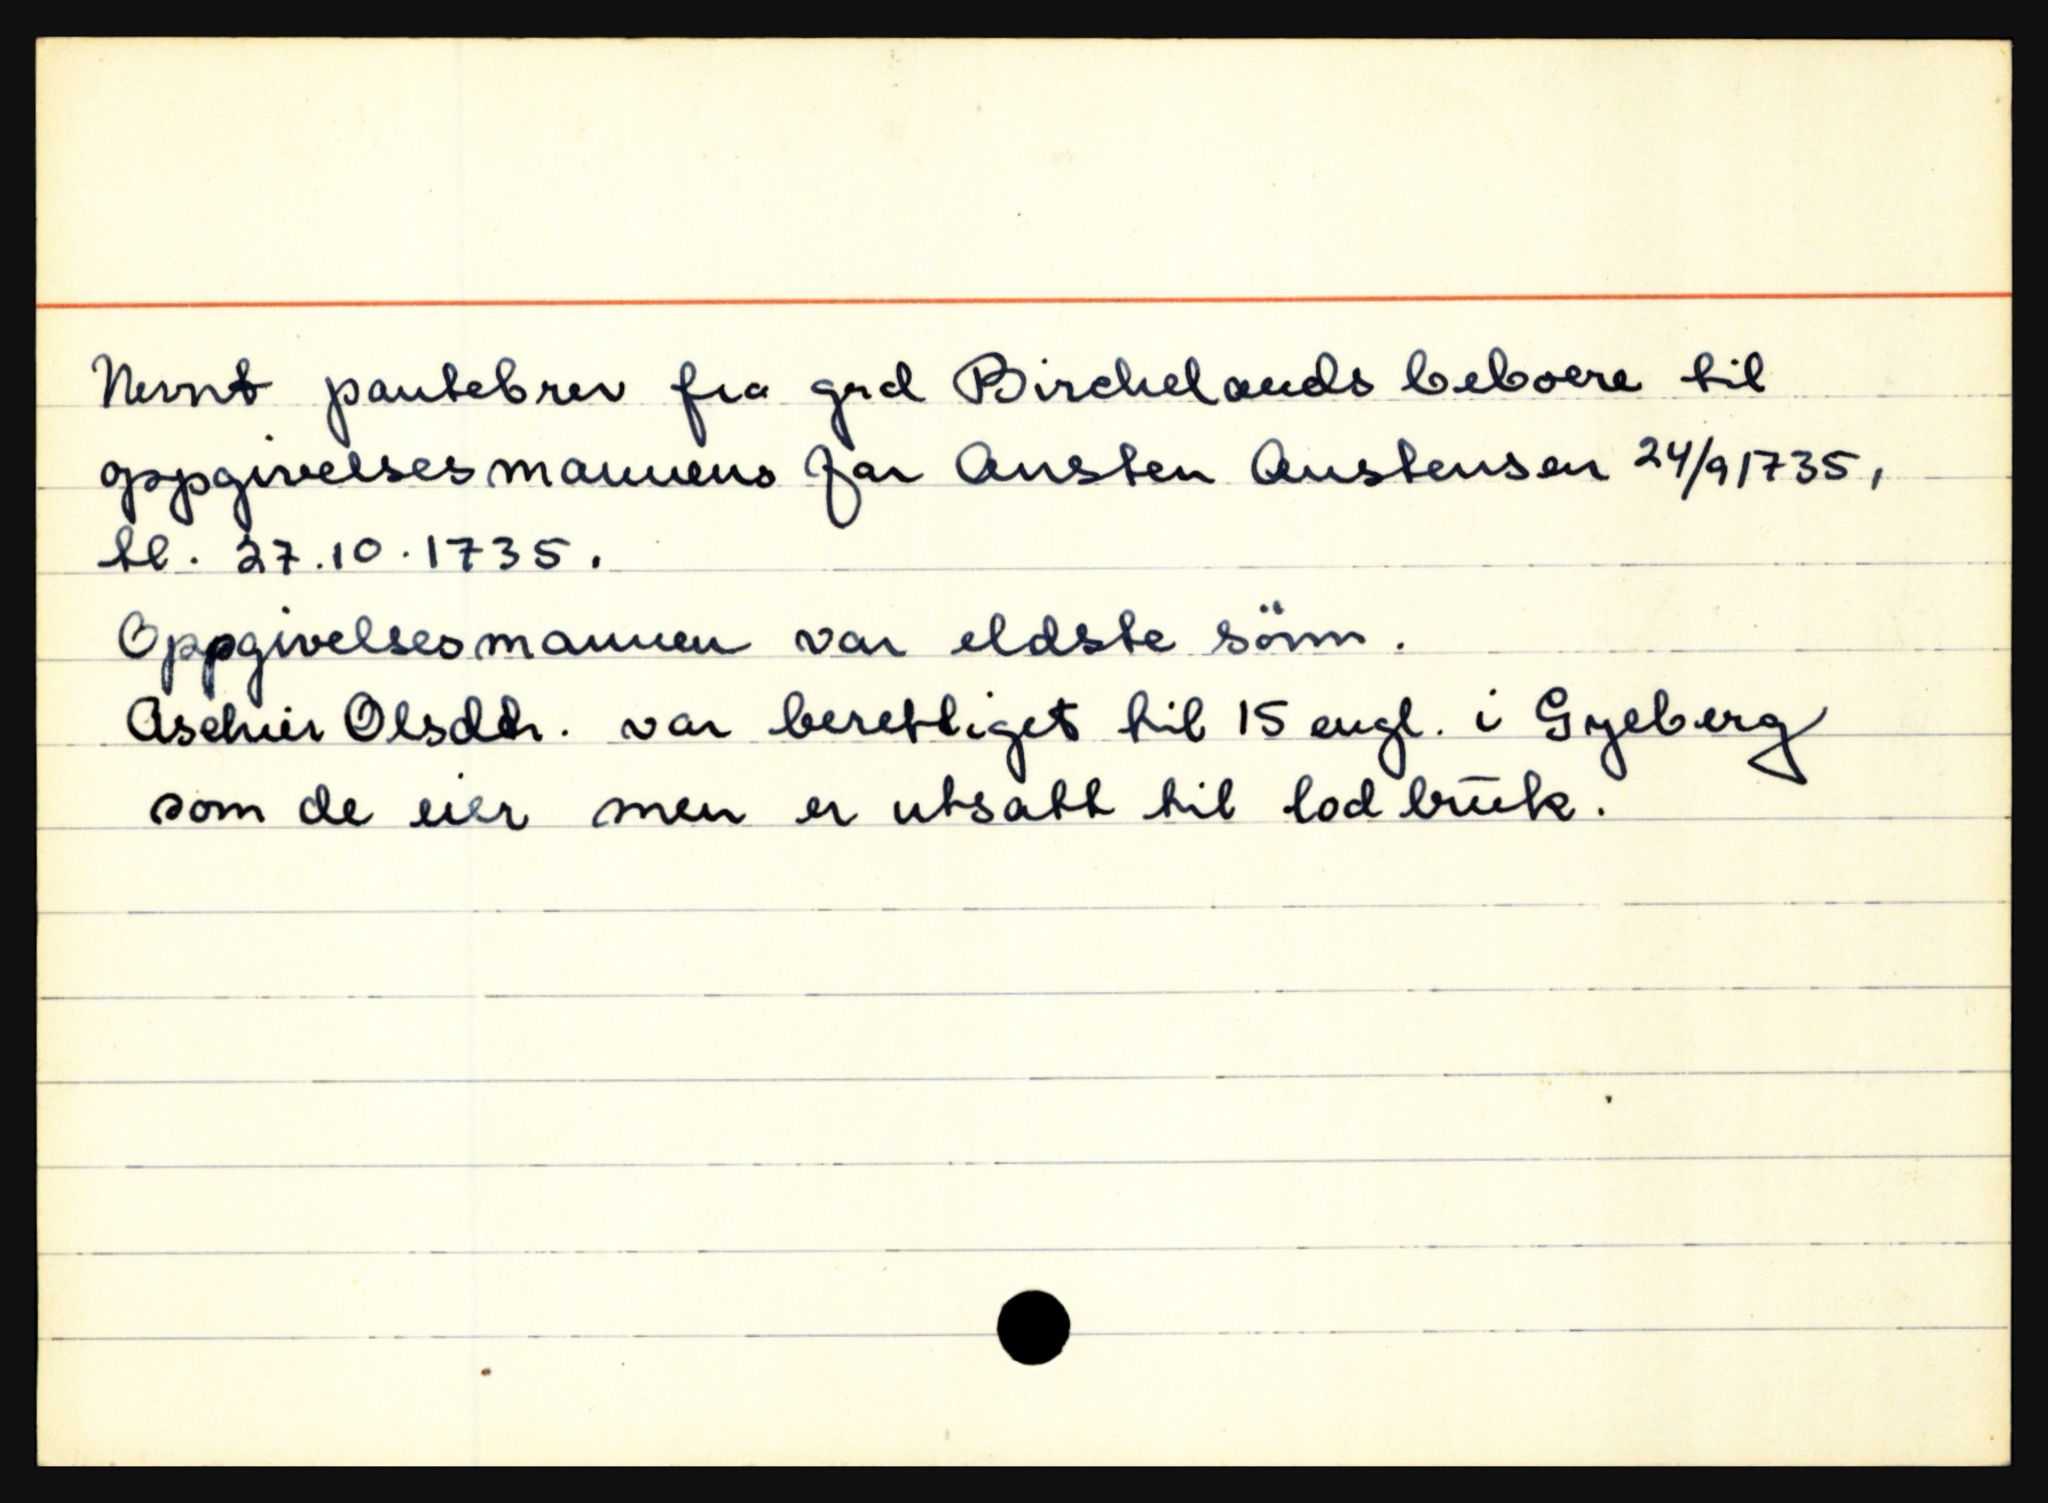 Nevnt pantebrev fra grd Birchelands beboere til
oppgivelsesmannens far Austen Austensen 24/9 1735,
tl. 27.10.1735.
Oppgivelsesmannen var eldste sönn.
Aschier Olsdtr. var berettiget til 15 engl. i Gyeberg
som de eier men er utsatt til lod brūk.